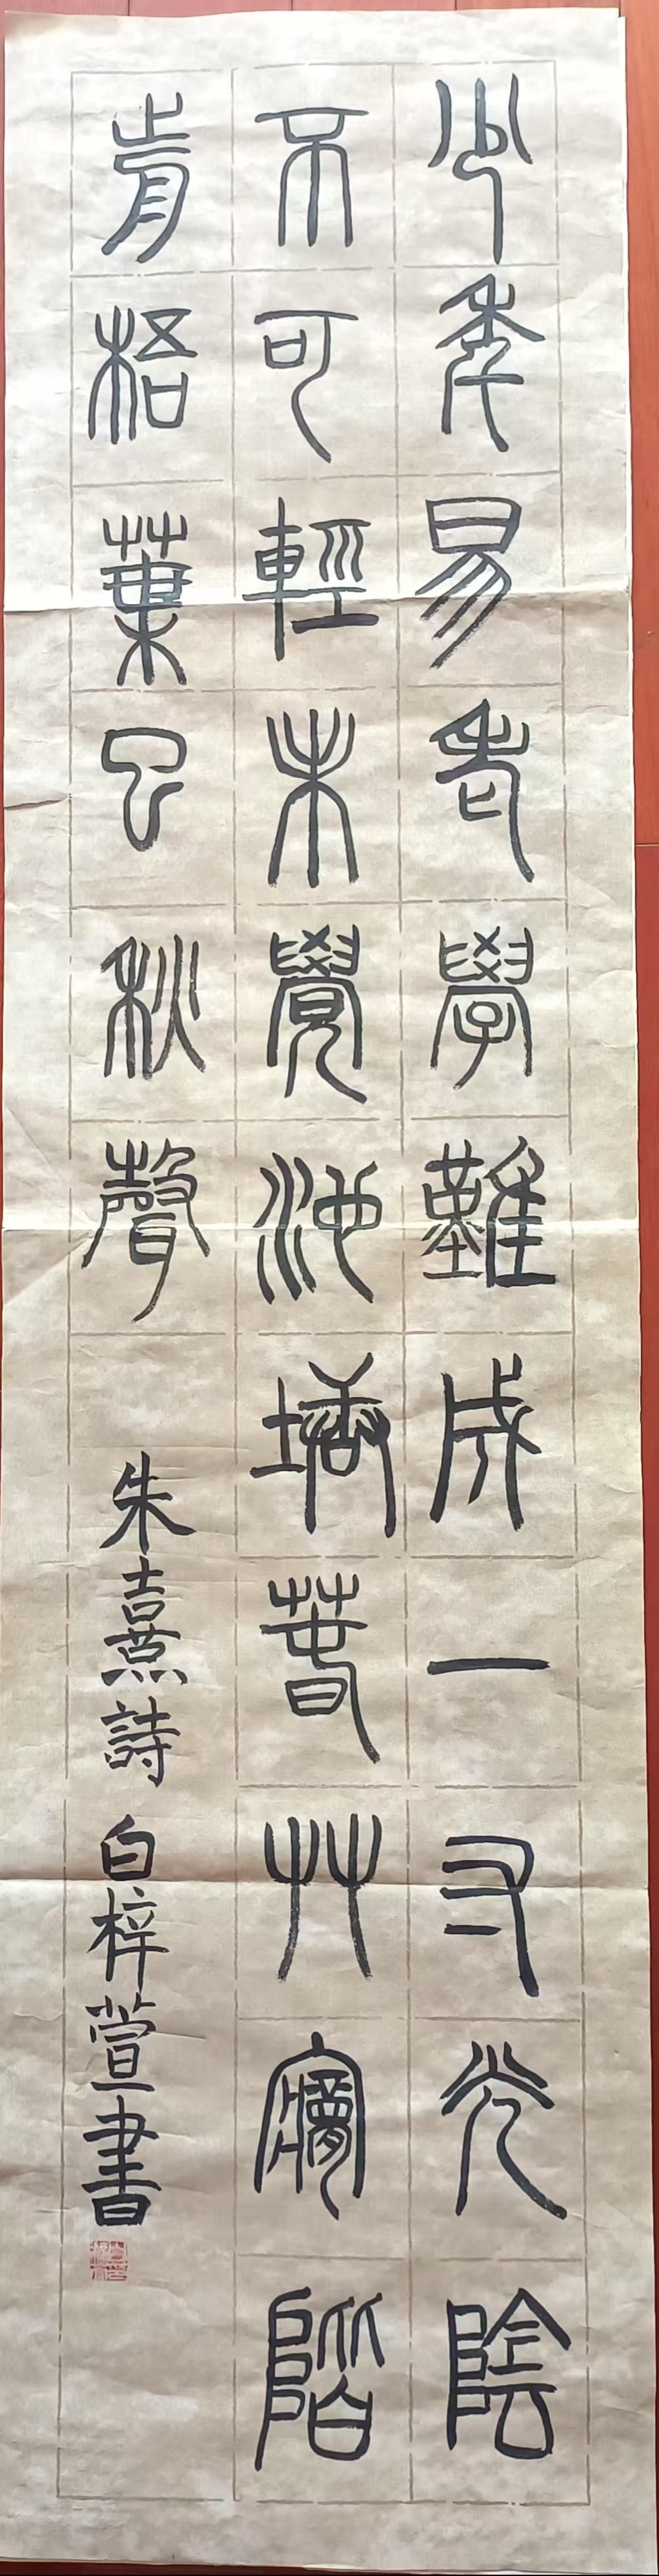 少年易老學難成一寸光陰
不可輕未覺池塘春艸夢階
前梧葉已秋聲 朱熹詩 白梓萱書